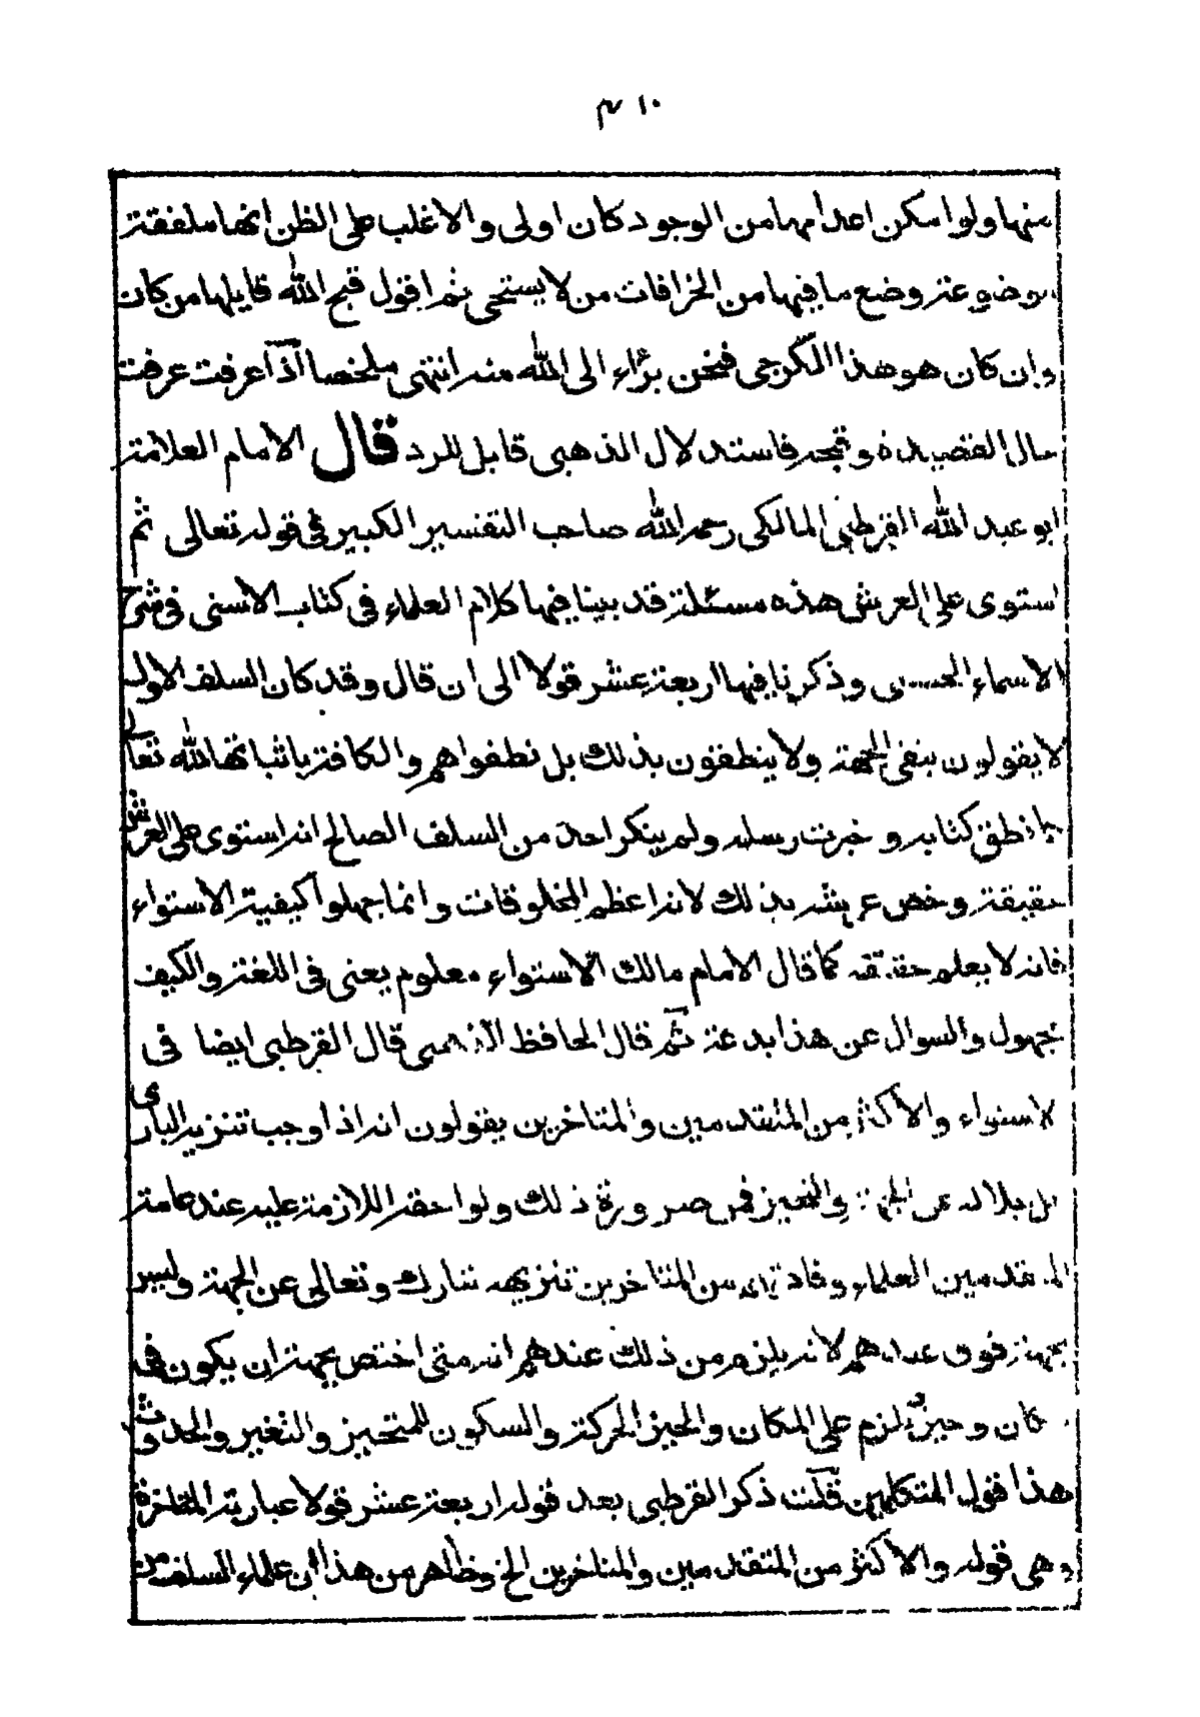 ٣١٠
منها ولو امكن اعدامها من الوجود كان اولى والاغلب على الظن انها ملفقة
موضوعة وضع ما فيها من الخرافات من لا يستحى ثم اقول قبح الله قايلها من كان
وان كان هو هذا الكرجى فنحن برٓاء الى الله منه انتهى ملخصا اذا عرفت عرفت
حال القصيده وقبحه فاستدلال الذهبى قابل للرد قال الامام العلامة
ابو عبد الله القرطبى المالكى رحمه الله صاحب التفسير الكبير فى قوله تعالى ثم
استوى على العرش هذه مسئلة قد بينا فيها كلام العلماء فى كتاب الاسنى فى شرح
الاسماء الحسنى وذكرنا فيها اربعة عشر قولا الى ان قال وقد كان السلف الاول
لا يقولون بنفى الجهة ولا ينطقون بذلك بل نطقوا هم والكافة باثباتها لله تعالى
كما نطق كتابه وخبرت رسله ولم ينكر احد من السلف الصالح انه استوى على العرش
حقيقة وخص عرشه بذلك لانه اعظم المخلوقات وانما جهلوا كيفية الاستواء
فانه لا يعلم حقيقته كما قال الامام مالك الاستواء معلوم يعنى فى اللغة والكيف
مجهول والسوال عن هذا بدعة ثم قال الحافظ الذهبى قال القرطبى ايضا فى
الاستواء والاكثر من المتقدمين والمتاخرين يقولون انه اذا وجب تنزيه البارى
جل جلاله عن الجهة والتحيز فمن ضرورة ذلك ولواحقه اللازمة عليه عند عامة
المتقدمين العلماء وقادتهم من المتاخرين تنزيهه تبارك وتعالى عن الجهة وليس
بجهة فوق عندهم لانه يلزم من ذلك عندهم انه متى اختص بجهة ان يكون فى
مكان وحيز ويلزم على المكان والحيز الحركة والسكون للمتحيز والتغير والحدوث
هذا قول المتكلمين قلت ذكر القرطبى بعد قوله اربعة عشر قولا عبارته المتاخرة
وهى قوله والاكثر من المتقدمين والمتاخرين الخ وظاهر من هذا ان علماء السلف من